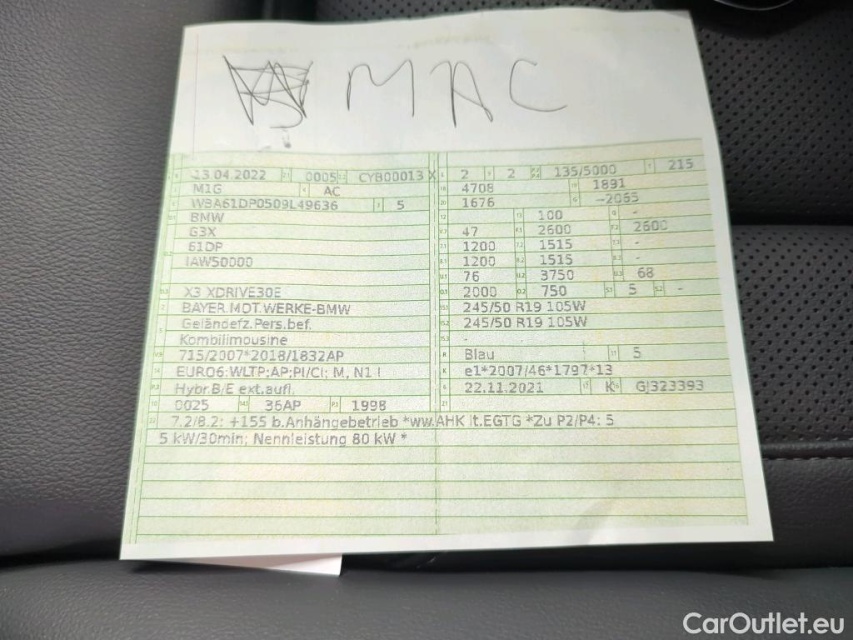 MAC
13.04.2022 0005 CYB00013 X 2 2 135/5000 215
M1G AC 4708 1891
WBA61DP0509L49636 5 1676 -2065
BMW 100 -
G3X 47 2600 2600
61DP 1200 1515 -
IAW50000 1200 1515 -
76 3750 68
X3 XDRIVE30E 2000 750 5 -
BAYER.MOT.WERKE-BMW 245/50 R19 105W
Geländefz.Pers.bef. 245/50 R19 105W
Kombilimousine -
715/2007*2018/1832AP Blau 5
EURO6;WLTP;AP;PI/CI; M, N1 I e1*2007/46*1797*13
Hybr.B/E ext.aufl. 22.11.2021 K GJ323393
0025 36AP 1998
7.2/8.2: +155 b.Anhängebetrieb *ww.AHK lt.EGTG *Zu P2/P4: 5
5 kW/30min; Nennleistung 80 kW *
CarOutlet.eu